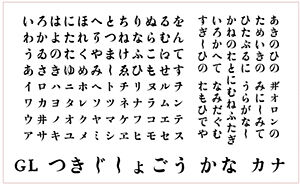 あきのひの
ヸオロンの
ためいきの
みにしみて
ひたぶるに
うらがなし
かねのおとに
むねふたぎ
いろかへて
なみだぐむ
すぎしひの
おもひでや
いろはにほへとちりぬるを
わかよたれそつねならむん
うゐのおくやまけふこえて
あさきゆめみしゑひもせす
イロハニホヘトチリヌルヲ
ワカヨタレソツネナラムン
ウヰノオクヤマケフコエテ
アサキユメミシヱヒモセス
GL つきじしょごう かな カナ